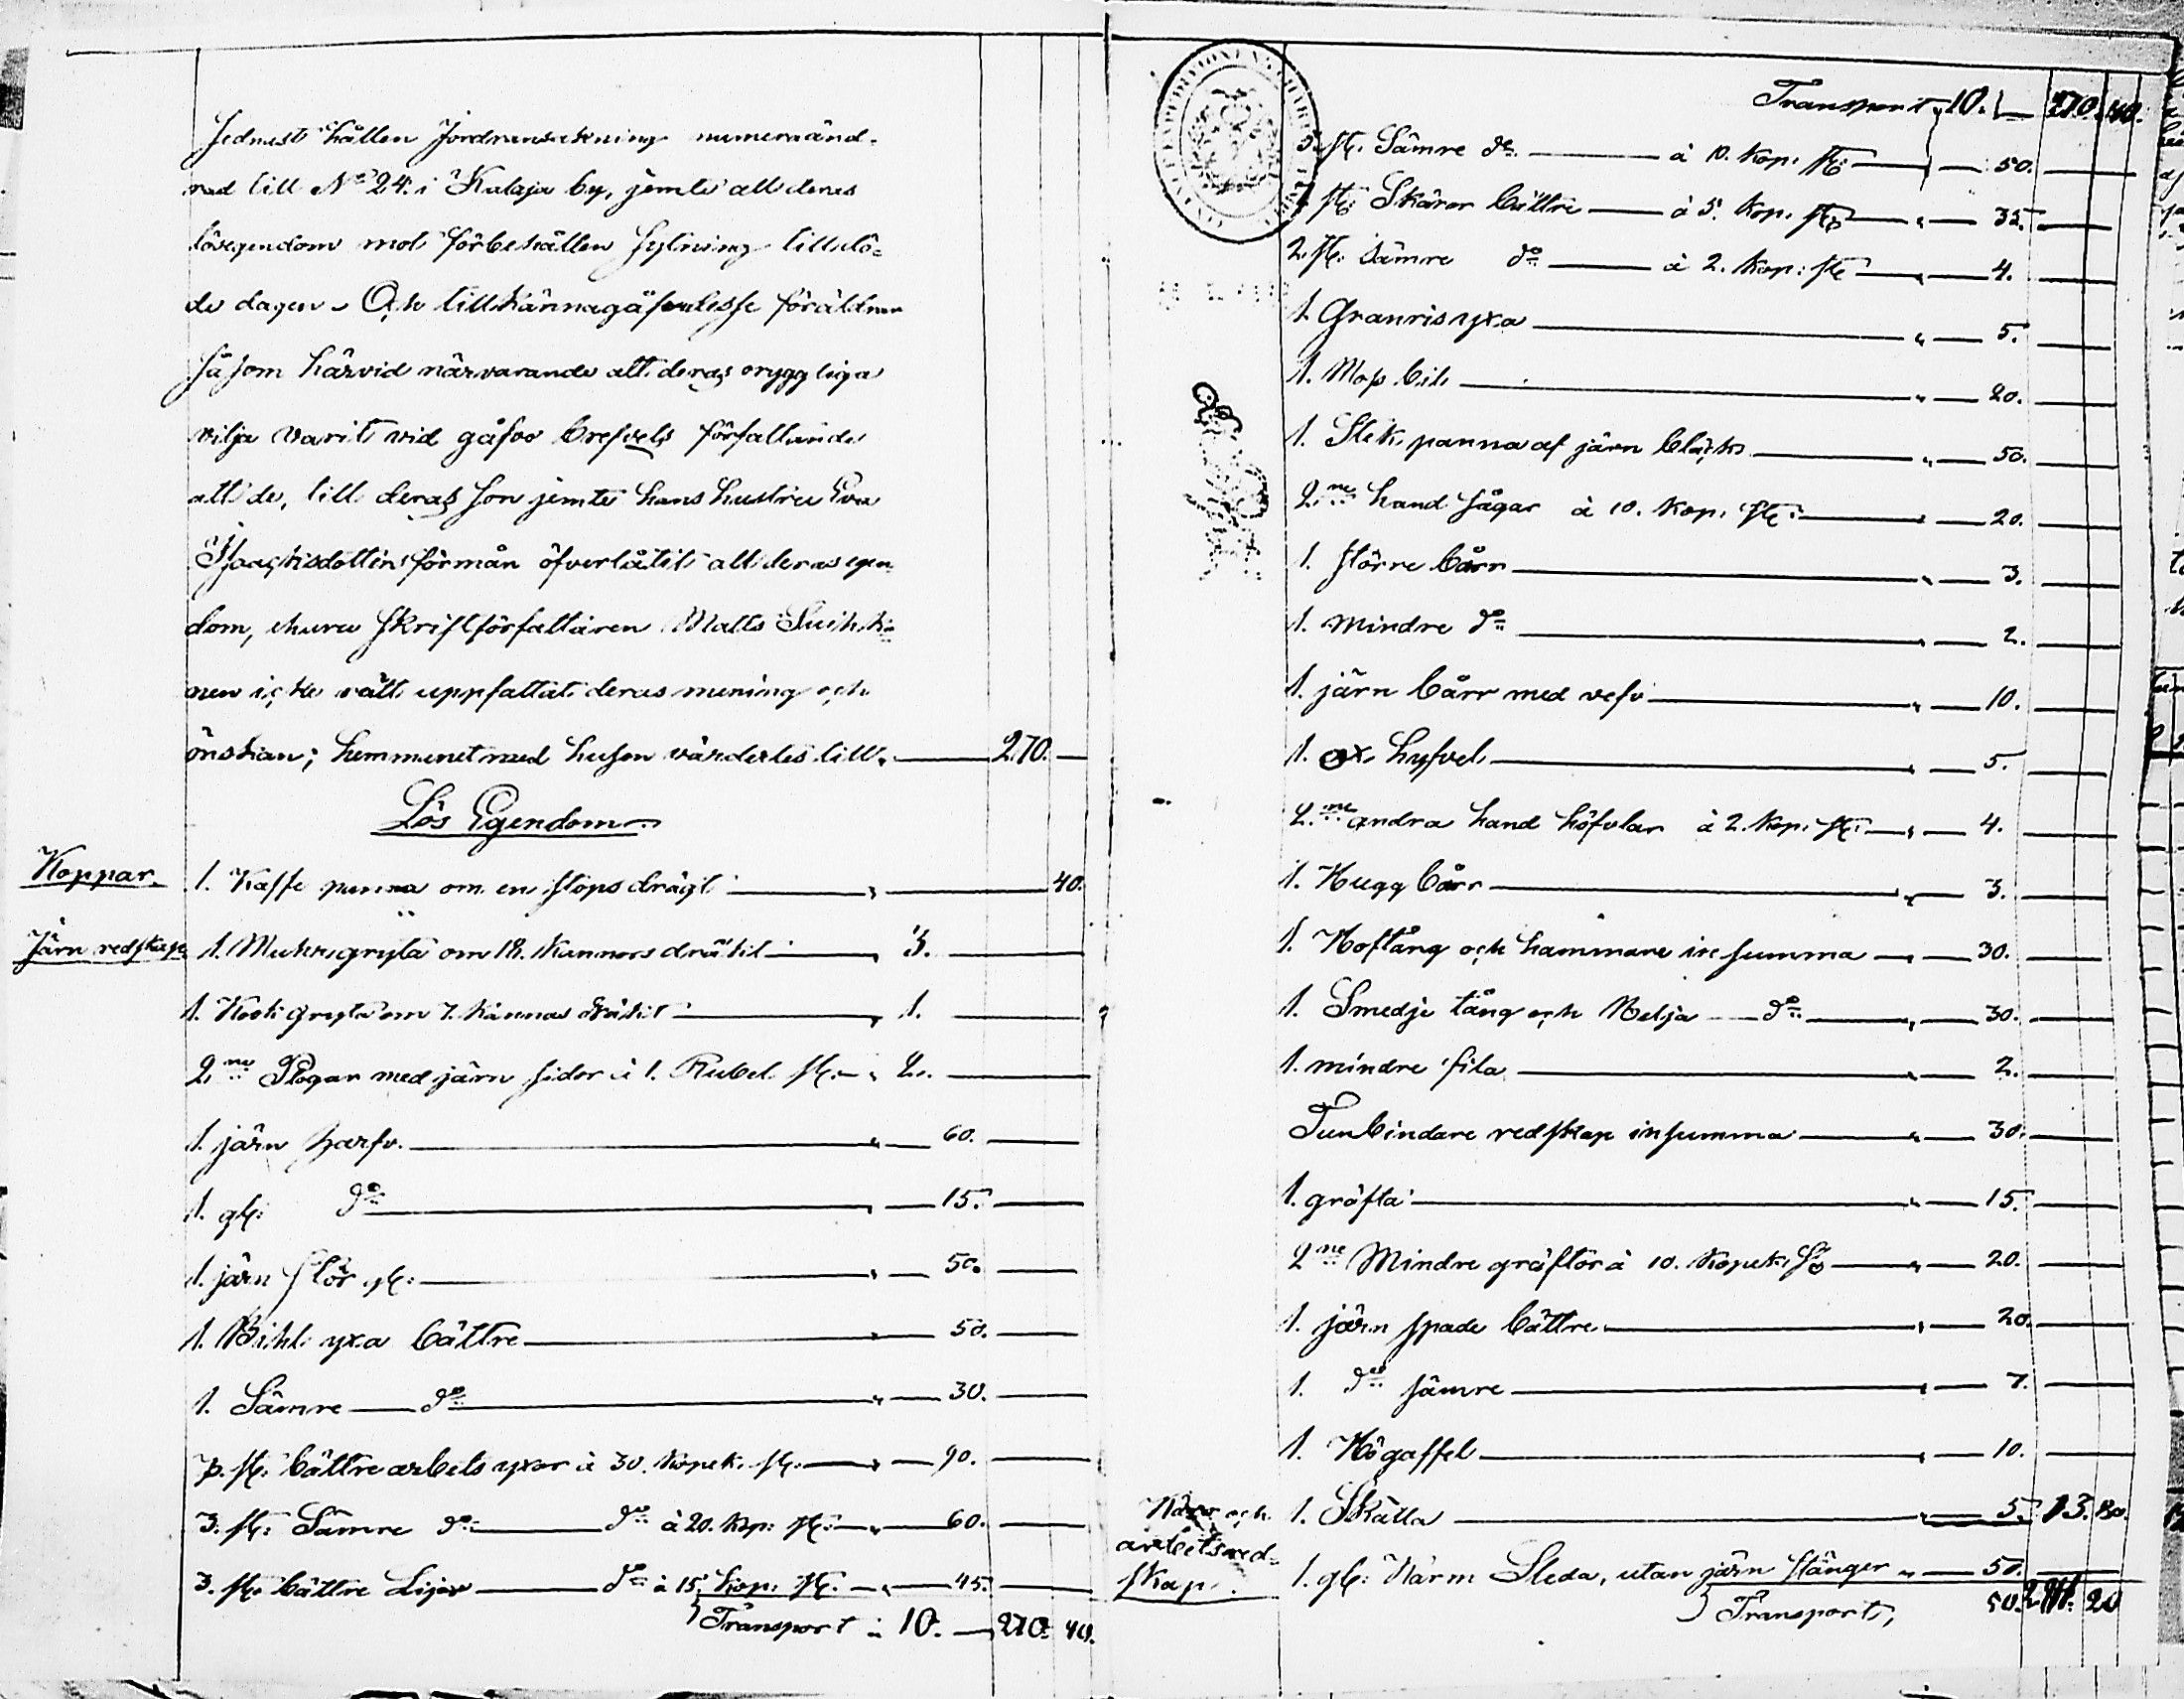 hållen Jordransakning numera änd-
rad till No 24. i Kalaja by, jemte all deras
lösegendom mot förbehållen sytning till dö-
de dagen. Och tillkännagåfvo desse föräldrar
såsom härvid närvarande att deras orygg liga
vilja varit vid gåfvo brefvets författande
att de, till deras son jemte hans hustru Eva
Isaacksdotters förmån öfverlåtit all deras egen
dom, ehuru skriftförfattaren Matts Suihko-
nen icke rätt uppfattat deras mening och
önskan; hemmanet med husen värdertes till. 270.
Lös Egendom
Koppar. 1. Kaffe panna om en stops drägt 40.
Järn redskap 1. Muhrgryta om 18. Kannors dräkt 3.
1. Kock gryta om 7. Kannas dräkt 1.
2.ne Plogar med järn sidor à 1. Rubel st. 2.
1. järn harfv. 60.
1. gl: do 15.
1. järn stör gl: 50.
1. Bihl yxa bättre 50.
1. Sämre do 30.
3. st. bättre arbets yxor à 30. Kopek. st. 90.
3. st. Sämre do do à 20. kop: st. 60.
3. st. bättre Lijor do à 15. kop: st. 45.
Transport 10. 270. 40.
Transport 10. 270. 40.
5. st. Sämre do à 10. Kop. st. 50.
7 st. Skäror bättre à 5. Kop. st. 35.
2. st. sämre do à 2. kop: st 4.
1. Granris yxa 5.
1. Mops bil 20.
1. Stek panna af järn bläck 50.
2.ne hand sågar à 10. Kop. st. 20.
1. större bårr 3.
1. mindre do 2.
1. järn bårr med vefv 10.
1. ox hyfvel 5.
2.ne andra hand höfvlar à 2. Kop. st. 4.
1. Hugg bårr 3.
1. Hoftång och hammare in summa 30.
1. Smedje tång och do 30.
1. mindre fila 2.
Tunbindare redskap in summa 30.
1. gräfta 15.
2ne Mindre gräftor à 10. Kopek. st 20.
1. järn spade bättre 20.
1. do sämre 7.
1. Högaffel 10.
1. Skälla 5. 13. 80.
och arbetsred-
skap. 1. gl: Sleda, utan järn stänger 50.
Transport, 50. 284. 20